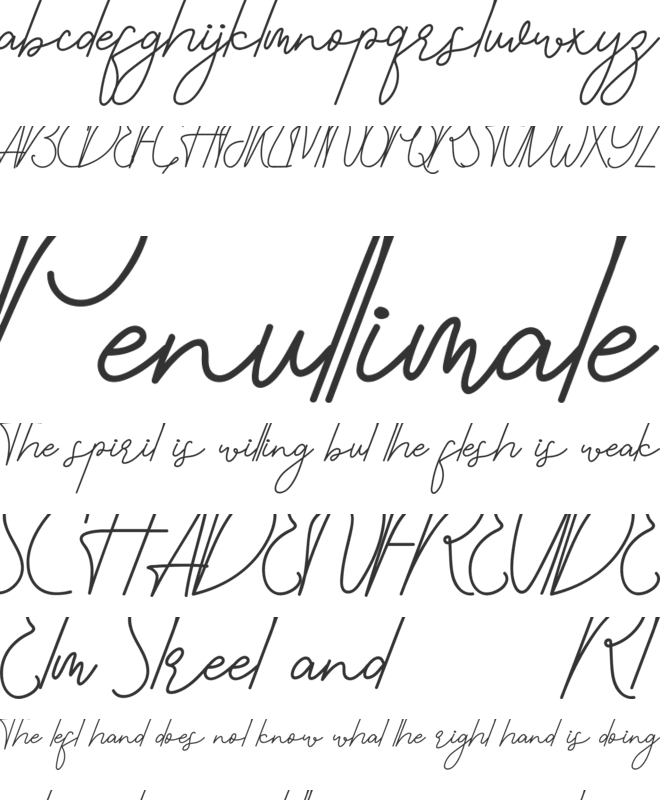 abcdefghijklmnopqrstuvwxyz
ABCDEFGHIJKLMNOPQRSTUVWXYZ
Penultimate
The spirit is willing but the flesh is weak
SCHADENFREUDE
Elm Street and
The left hand does not know what the right hand is doing